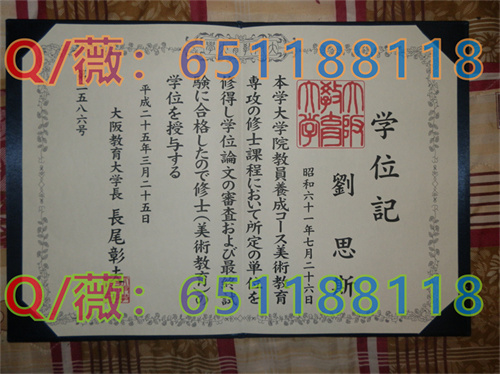 Q/薇：651188118
学位記
劉思
昭和六十一年七月二十六日
本学大学院教員養成コース美術教育
専攻の修士課程において所定の単位を
修得し学位論文の審査および最終試
験に合格したので修士（美術教育）の
学位を授与する
平成二十五年三月二十五日
大阪教育大学長 長尾彰士
一五八六号
大阪
教育
大学
Q/薇：651188118
Q/薇：651188118